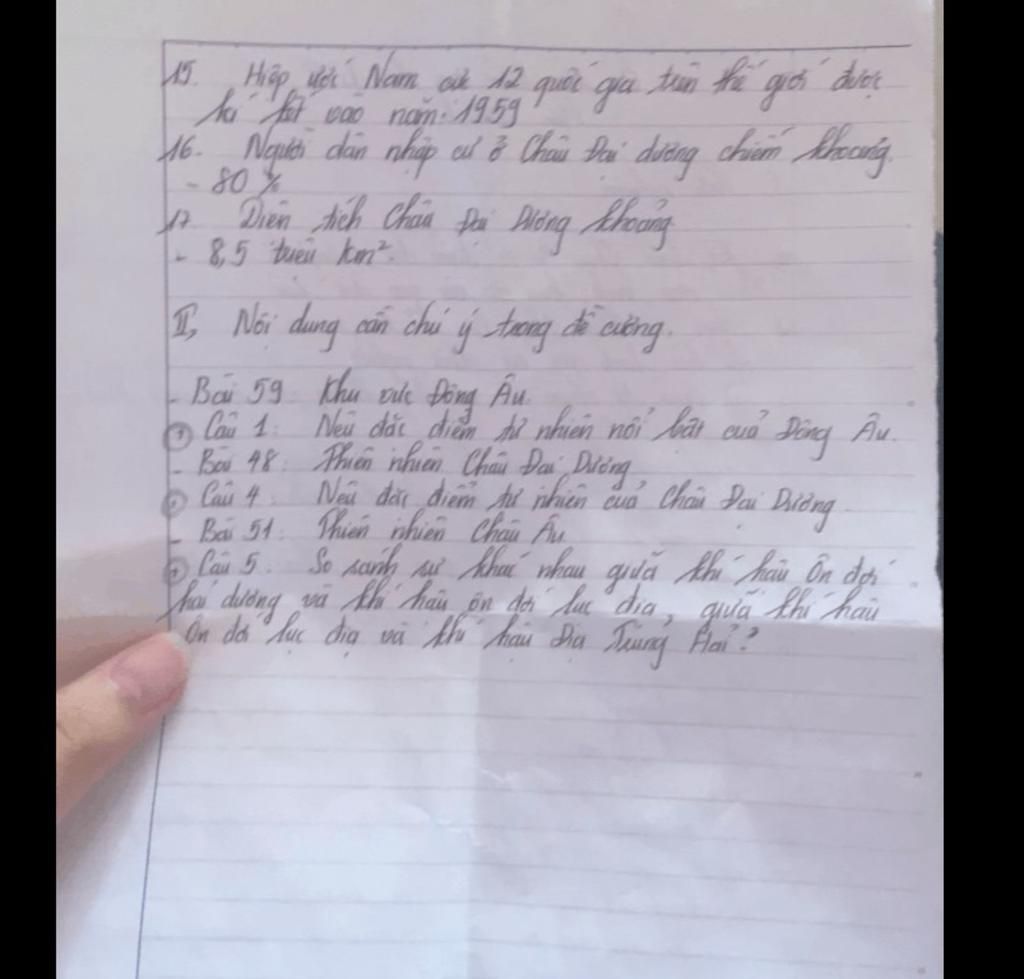 15. Hiệp ước Nam cực 12 quốc gia trên thế giới được
kí kết vào năm: 1959
16. Người dân nhập cư ở Châu Đại dương chiếm khoảng
- 80 %
17 Diện tích Châu Đại Dương khoảng
- 8,5 triệu km².
II, Nội dung cần chú ý trong đề cương.
- Bài 59: Khu vực Đông Âu.
+ Câu 1: Nêu đặc điểm tự nhiên nổi bật của Đông Âu.
- Bài 48: Thiên nhiên Châu Đại Dương
+ Câu 4: Nêu đặc điểm tự nhiên của Châu Đại Dương
- Bài 51: Thiên nhiên Châu Âu
+ Câu 5: So sánh sự khác nhau giữa khí hậu Ôn đới
hải dương và khí hậu ôn đới lục địa, giữa khí hậu
Ôn đới lục địa và khí hậu Địa Trung Hải?